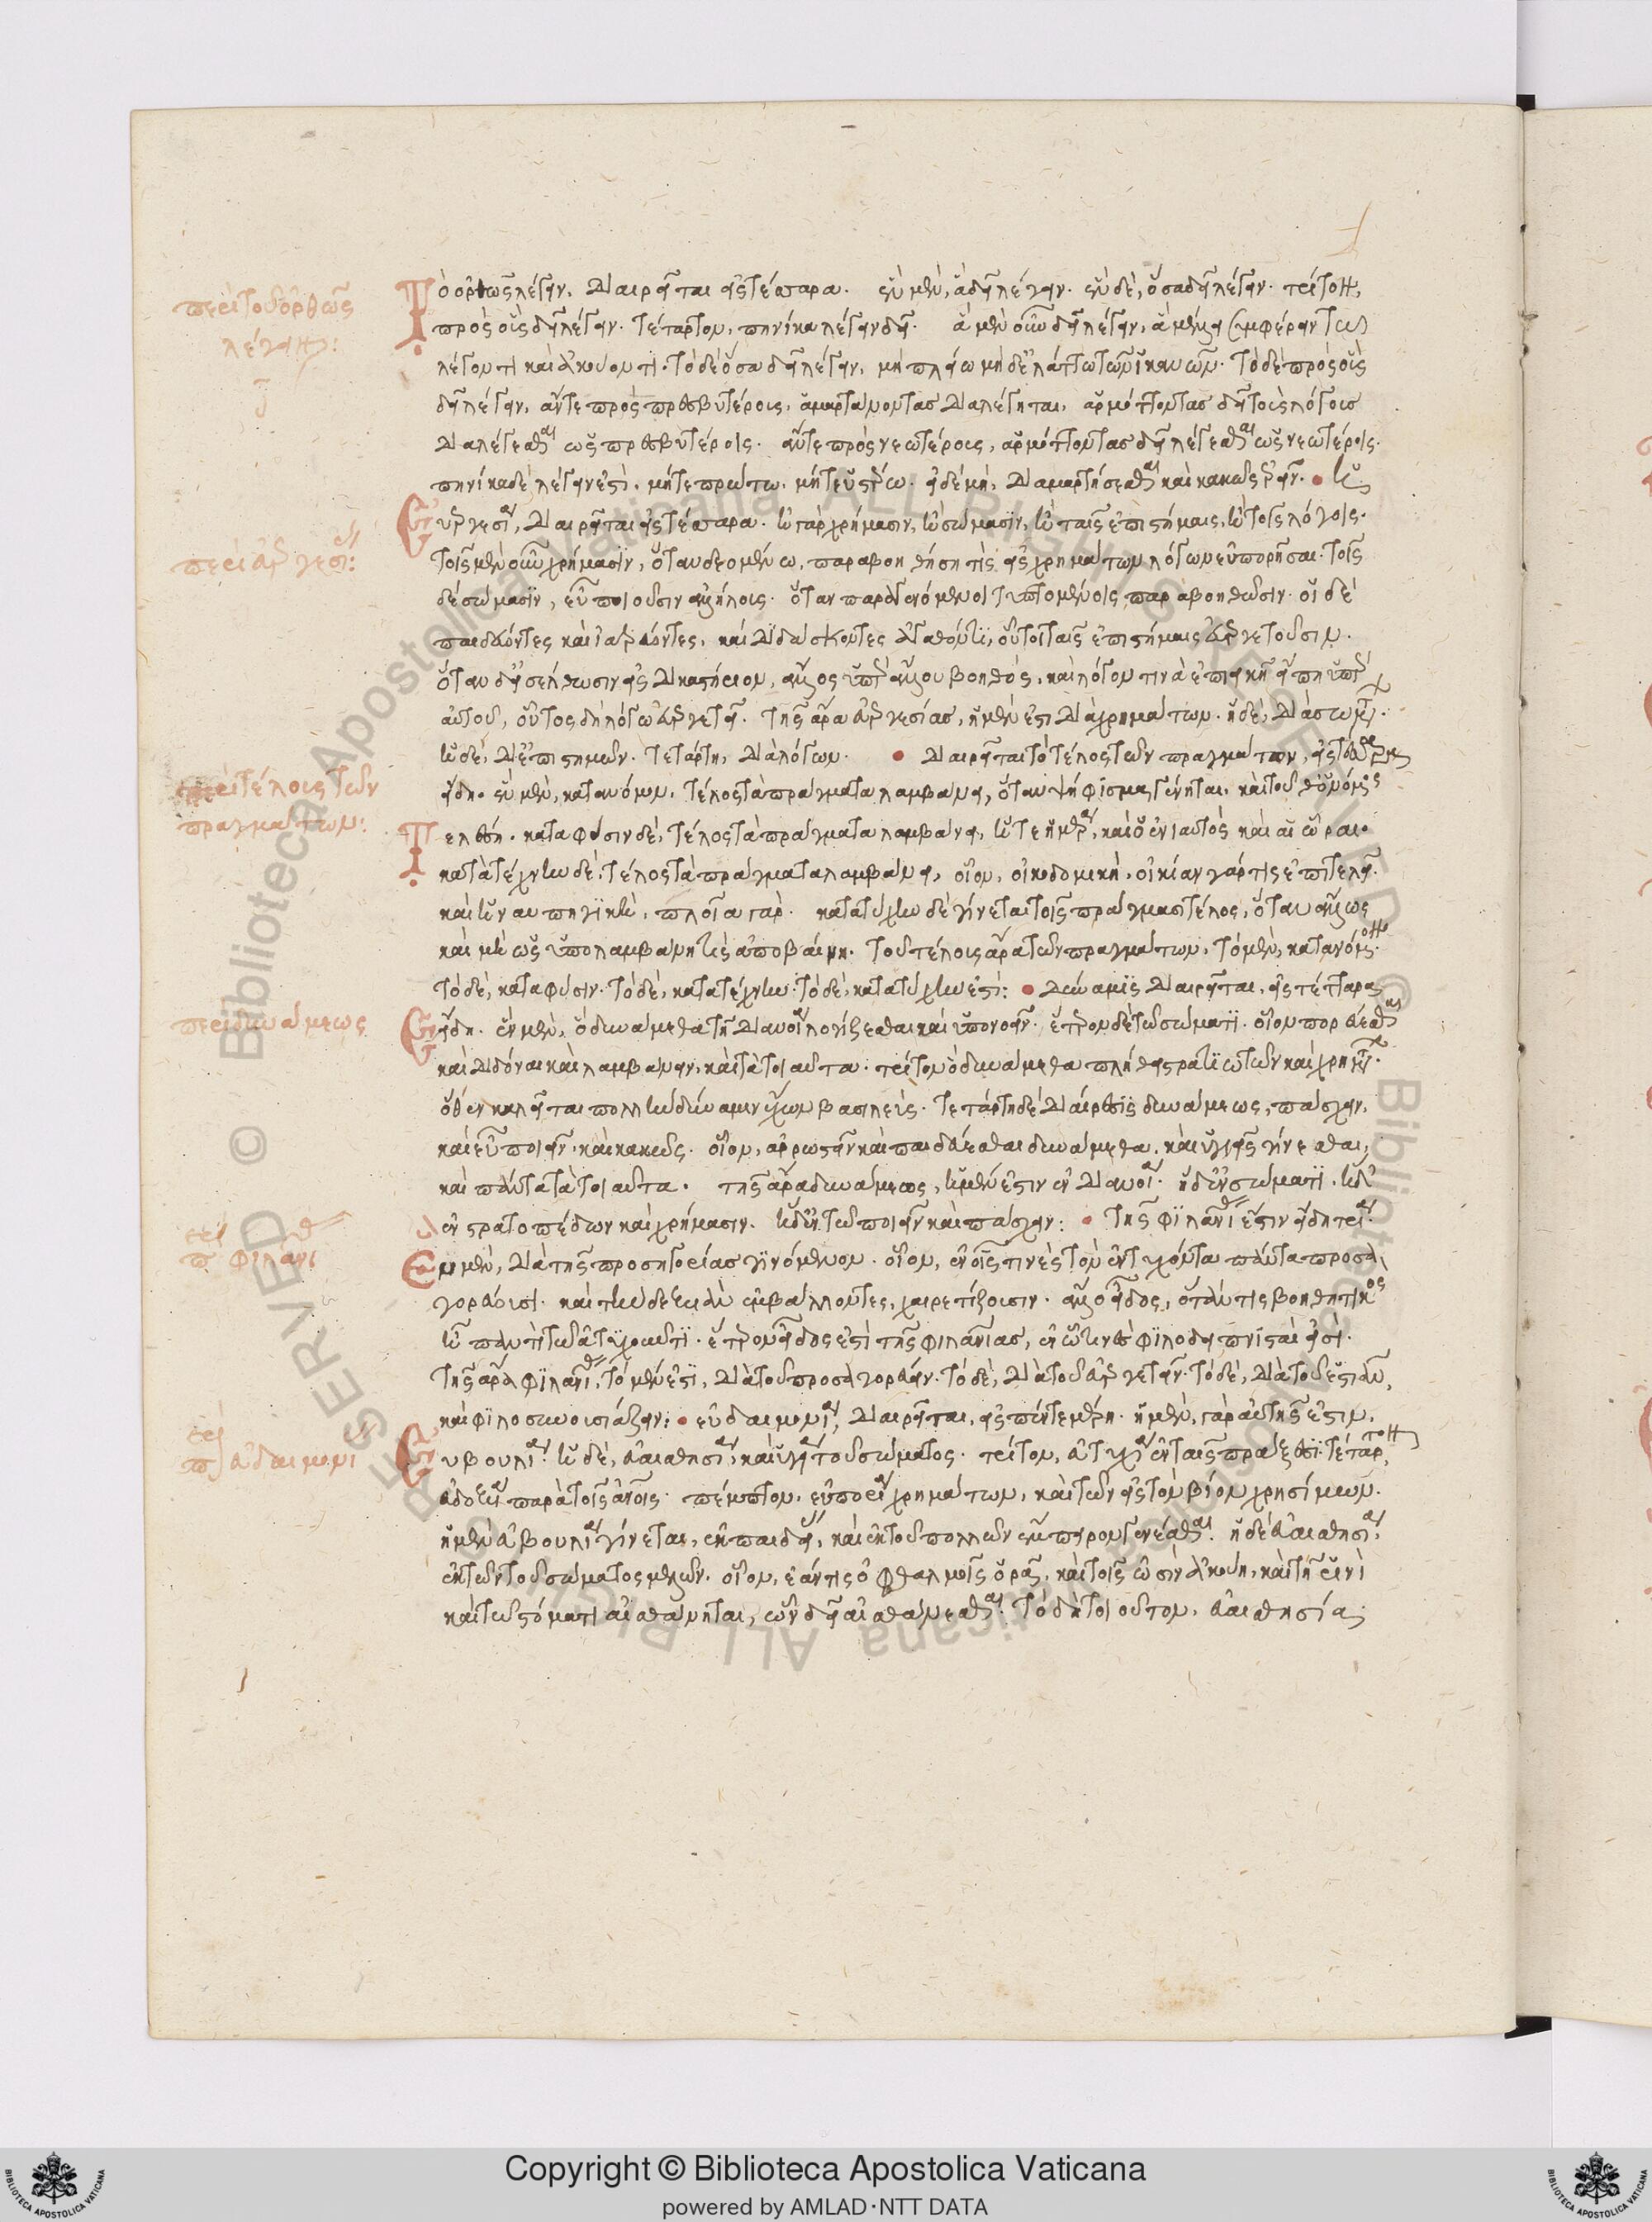 περὶ τοῦ ὀρθῶς
λέγειν:
Τὸ ὀρθῶς λέγειν, διαιρεῖται εἰς τέσσαρα. ἓν μὲν, ἃ δεῖ λέγειν. ἓν δὲ, ὅσα δεῖ λέγειν. τρίτον,
πρὸς οἷς δεῖ λέγειν. τέταρτον, πηνίκα λέγειν δεῖ. ἃ μὲν οὖν δεῖ λέγειν, ἃ μέλλει συμφέρειν τῶ
λέγοντι καὶ ἀκούοντι. τὸ δὲ ὅσα δεῖ λέγειν, μὴ πλείω μηδὲ ἐλάττω τῶν ἱκανῶν. τὸ δὲ πρὸς οἷς
δεῖ λέγειν, ἄν τε πρὸς πρεσβυτέροις, ἁμαρτάνοντας διαλέγηται, ἁρμόττοντας δεῖ τοὺς λόγους
διαλέγεσθαι ὡς πρεσβυτέροις. ἄν τε πρὸς νεωτέροις, ἁρμόττοντας δεῖ λέγεσθαι ὡς νεωτέροις.
πηνίκα δὲ λέγειν ἐστὶ, μήτε πρώτω, μήτε ὑστέρω. εἰ δὲ μὴ, διαμαρτήσεσθαι καὶ κακῶς ἐρεῖν. Ἡ
περὶ εὐεργεσίας:
εὐεργεσία, διαιρεῖται εἰς τέσσαρα. ἢ γὰρ χρήμασιν, ἢ σώμασιν, ἢ ταῖς ἐπιστήμαις, ἢ τοῖς λόγοις.
τοῖς μὲν οὖν χρήμασιν, ὅταν δεομένω, παραβοηθήση τὶς εἰς χρημάτων λόγων εὐπορῆσαι. τοῖς
δὲ σώμασιν, εὖ ποιοῦσιν ἀλλήλοις. ὅταν παραγενόμενοι τυπτομένοις παραβοηθῶσιν. οἱ δὲ
παιδεύοντες καὶ ἰατρεύοντες, καὶ διδάσκοντες ἀγαθόν τι, οὗτοι ταῖς ἐπιστήμαις εὐεργετοῦσιν.
ὅταν δ' εἰσέλθωσιν εἰς δικαστήριον, ἄλλος ὑπὲρ ἄλλου βοηθὸς, καὶ λόγον τινὰ ἐπιεικῆ εἴπη ὑπὲρ
αὐτοῦ, οὗτος δὴ λόγω εὐεργετεῖ. τῆς ἄρα εὐεργεσίας, ἡ μὲν ἔστι διὰ χρημάτων. ἡ δὲ, διὰ σωμάτων.
ἡ δὲ, δι' ἐπιστημῶν. τετάρτη, διὰ λόγων. διαιρεῖται τὸ τέλος τῶν πραγμάτων, εἰς τέσσαρα
περὶ τέλους τῶν
πραγμάτων:
εἴδη. ἓν μὲν, κατὰ νόμον, τέλος τὰ πράγματα λαμβάνει, ὅταν ψήφισμα γένηται, καὶ τοῦθ' ὁ νόμος
τελέση. κατὰ φύσιν δὲ, τέλος τὰ πράγματα λαμβάνει, ἥ τε ἡμέρα, καὶ ὁ ἐνιαυτὸς καὶ αἱ ὧραι.
κατὰ τέχνην δὲ, τέλος τὰ πράγματα λαμβάνει, οἷον, οἰκοδομικὴ, οἰκίαν γάρ τις ἐπιτελεῖ.
καὶ ἡ ναυπηγικὴ, πλοῖα γάρ. κατὰ τύχην δὲ γίνεται τοῖς πράγμασι τέλος, ὅταν ἄλλως
καὶ μὴ ὡς ὑπολαμβάνη τὶς ἀποβαίνη. τοῦ τέλους ἄρα τῶν πραγμάτων, τὸ μὲν, κατὰ νόμον.
τὸ δὲ, κατὰ φύσιν. τὸ δὲ, κατὰ τέχνην. τὸ δὲ, κατὰ τύχην ἐστί: δύναμις διαιρεῖται, εἰς τέτταρα
περὶ δυνάμεως
εἴδη. ἓν μὲν, ὃ δυνάμεθα τῆ διανοία λογίζεσθαι καὶ ὑπονοεῖν. ἕτερον δὲ τῶ σώματι. οἷον πορεύεσθαι
καὶ διδόναι καὶ λαμβάνειν, καὶ τὰ τοιαῦτα. τρίτον ὃ δυνάμεθα πλήθει στρατιωτῶν καὶ χρημάτων.
ὅθεν καλεῖται πολλὴν δύναμιν ἔχων βασιλεύς. τετάρτη δὲ διαίρεσις δυνάμεως, πάσχειν,
καὶ εὖ ποιεῖν, καὶ κακῶς. οἷον, ἀρρωστεῖν καὶ παιδεύεσθαι δυνάμεθα, καὶ ὑγιεῖς γίνεσθαι,
καὶ πάντα τὰ τοιαῦτα. τῆς ἄρα δυνάμεως, ἡ μέν ἐστιν ἐν διανοία. ἡ δ' ἐν σώματι. ἡ δ'
ἐν στρατοπέδων καὶ χρήμασιν. ἡ δ' ἐν τῶ ποιεῖν καὶ πάσχειν: τῆς φιλανθρωπίας ἐστιν εἴδη τρία.
περὶ φιλανθρωπίας
ἓν μὲν, διὰ τῆς προσηγορίας γινόμενον. οἷον, ἐν οἷς τινὲς τὸν ἐντυχόντα πάντα προσα
γορεύουσι. καὶ τὴν δεξιὰν ἐμβάλλοντες, χαιρετίζουσιν. ἄλλο εἶδος, ὅταν τις βοηθητικὸς
ἦ παντὶ τῶ ἀτυχοῦντι. ἕτερον εἶδος ἐστὶ τῆς φιλανθρωπίας, ἐν ὧ τινὲς φιλοδειπνισταὶ εἰσί.
τῆς ἄρα φιλανθρωπίας, τὸ μέν ἐστι, διὰ τοῦ προσαγορεύειν. τὸ δὲ, διὰ τοῦ εὐεργετεῖν. τὸ δὲ, διὰ τοῦ ἑστιᾶν,
καὶ φιλοσυνουσιάζειν: εὐδαιμονία, διαιρεῖται, εἰς πέντε μέρη. ἡ μὲν, γὰρ αὐτῆς ἐστιν,
περὶ εὐδαιμονίας
εὐβουλία. ἡ δὲ, εὐαισθησία, καὶ ὑγεία τοῦ σώματος. τρίτον, εὐτυχία ἐν ταῖς πράξεσι. τέταρτον,
εὐδοξία παρὰ τοῖς ἀνθρώποις. πέμπτον, εὐπορία χρημάτων, καὶ τῶν εἰς τὸν βίον χρησίμων.
ἡ μὲν εὐβουλία γίνεται, ἐκ παιδείας, καὶ ἐκ τοῦ πολλῶν ἔμπειρον γενέσθαι. ἡ δὲ εὐαισθησία,
ἐκ τῶν τοῦ σώματος μελῶν. οἷον, ἐάν τις ὀφθαλμοῖς ὁρᾷ, καὶ τοῖς ὠσὶν ἀκούη, καὶ τῆ ῥινὶ
καὶ τῶ στόματι αἰσθάνηται, ὧν δεῖ αἰσθάνεσθαι. τὸ δὴ τοιοῦτον, εὐαισθησία
Copyright © Biblioteca Apostolica Vaticana
powered by AMLAD·NTT DATA